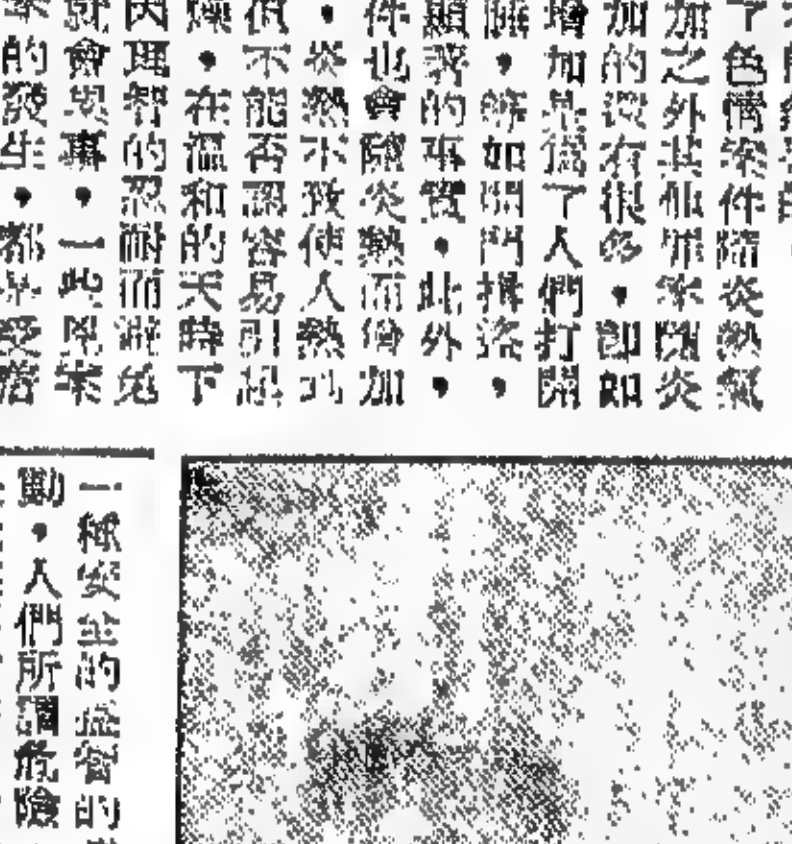 了色情案件隨炎熱氣
加之外其他罪案隨炎
加的還有很多，即如
增加是 了人們打開
，如開門揖盜，
顯著的事實，此外，
件也會隨炎熱而增加
，炎熱不致使人熱到
但不能否認容易引起
燥，在溫和的天時下
因理智的忍耐而避免
就會 事，一些兇案
案的發生，都是受着
一種安全的 的
動，人們所謂危險